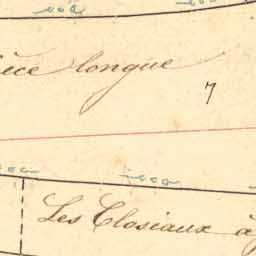 ièce longue
7
Les Closiaux à